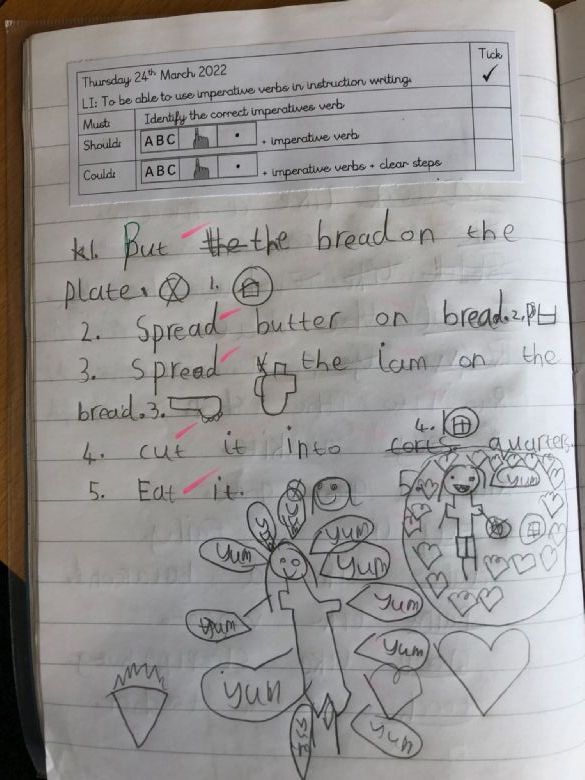 Tick
Thursday 24th March 2022
✓
LI: To be able to use imperative verbs in instruction writing.
Must: Identify the correct imperatives verb
Should: ABC . + imperative verb
Could: ABC . + imperative verbs + clear steps
1. Put the the bread on the
plate. 1.
2. Spread butter on bread. 2.
3. Spread the jam on the
bread. 3.
4.
4. cut it into quarters.
5. Eat it.
5.
yum
yum
yum
yum
yum
yum
yum
yum
yum